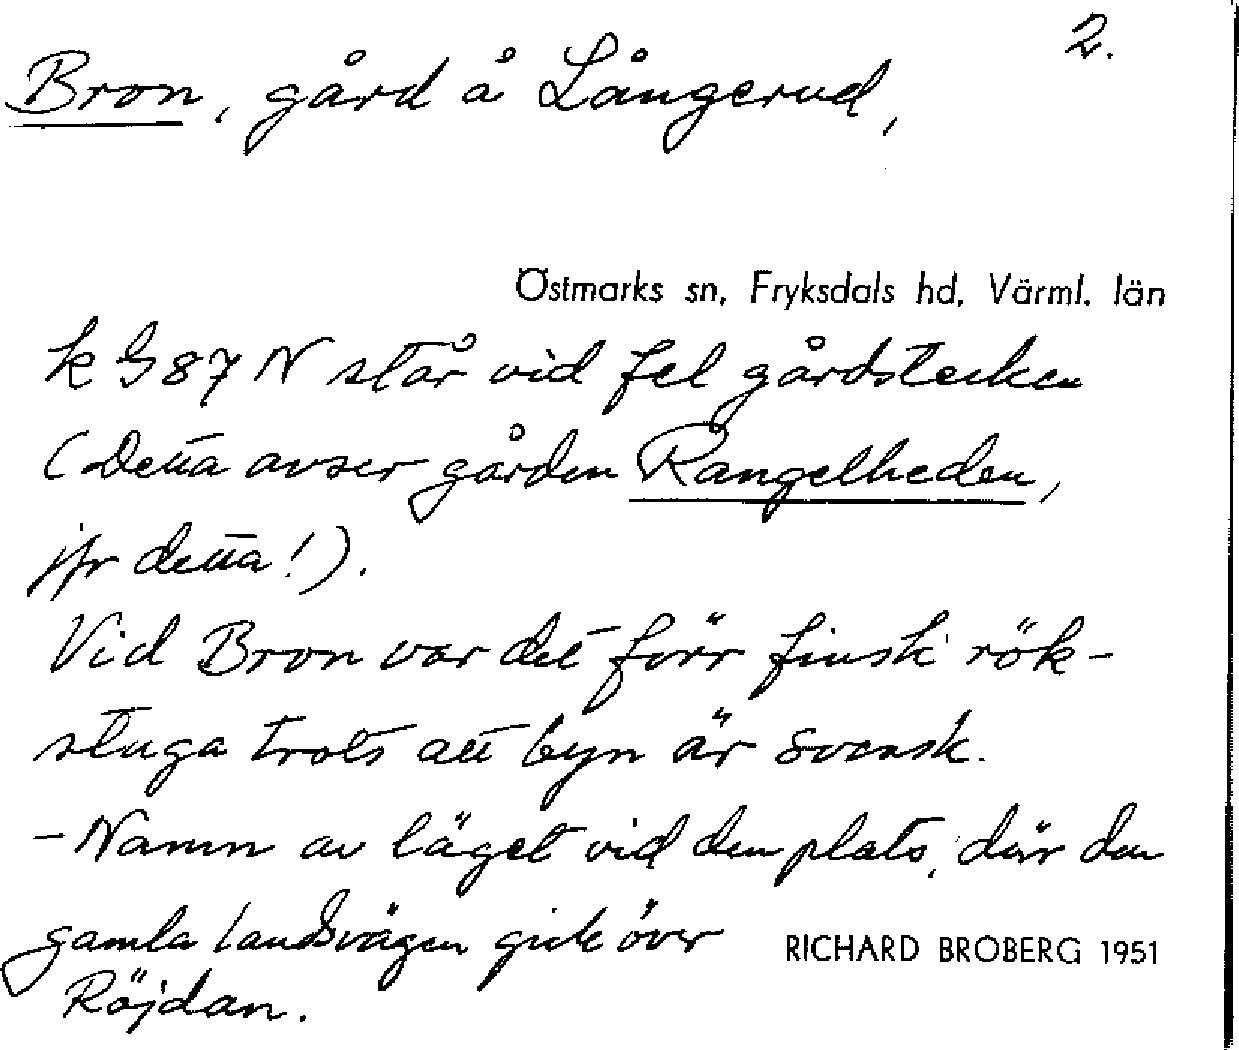 2.
Bron, gård å Långerud,
Östmarks sn, Fryksdals hd, Värml. län
k G 87 N står vid fel gårdstecken
(Detta avser gården Rangelheden,
jfr detta!).
Vid Bron var det förr finsk rök-
stuga trots att byn är svensk.
- Namn av läget vid den plats, där den
gamla landsvägen gick över
RICHARD BROBERG 1951
Röjdan.